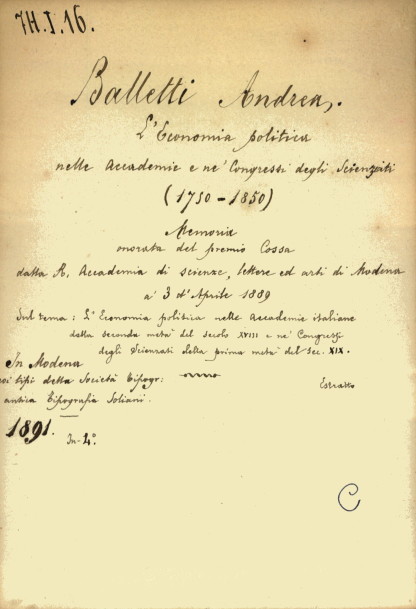 7H.I.16.
Balletti Andrea.
L'Economia politica
nelle Accademie e ne' Congressi degli Scienziati
(1750-1850)
Memoria
onorata del premio Cossa
dalla R. Accademia di scienze, lettere ed arti di Modena
a' 3 d'Aprile 1889
Sul tema: L'Economia politica nelle Accademie italiane
della seconda metà del secolo XVIII e ne' Congressi
degli Scienziati della prima metà del Sec. XIX.
In Modena
tipi della Società Tipogr:
Estratto
antica Tipografia Soliani.
1891.
In-4°.
C